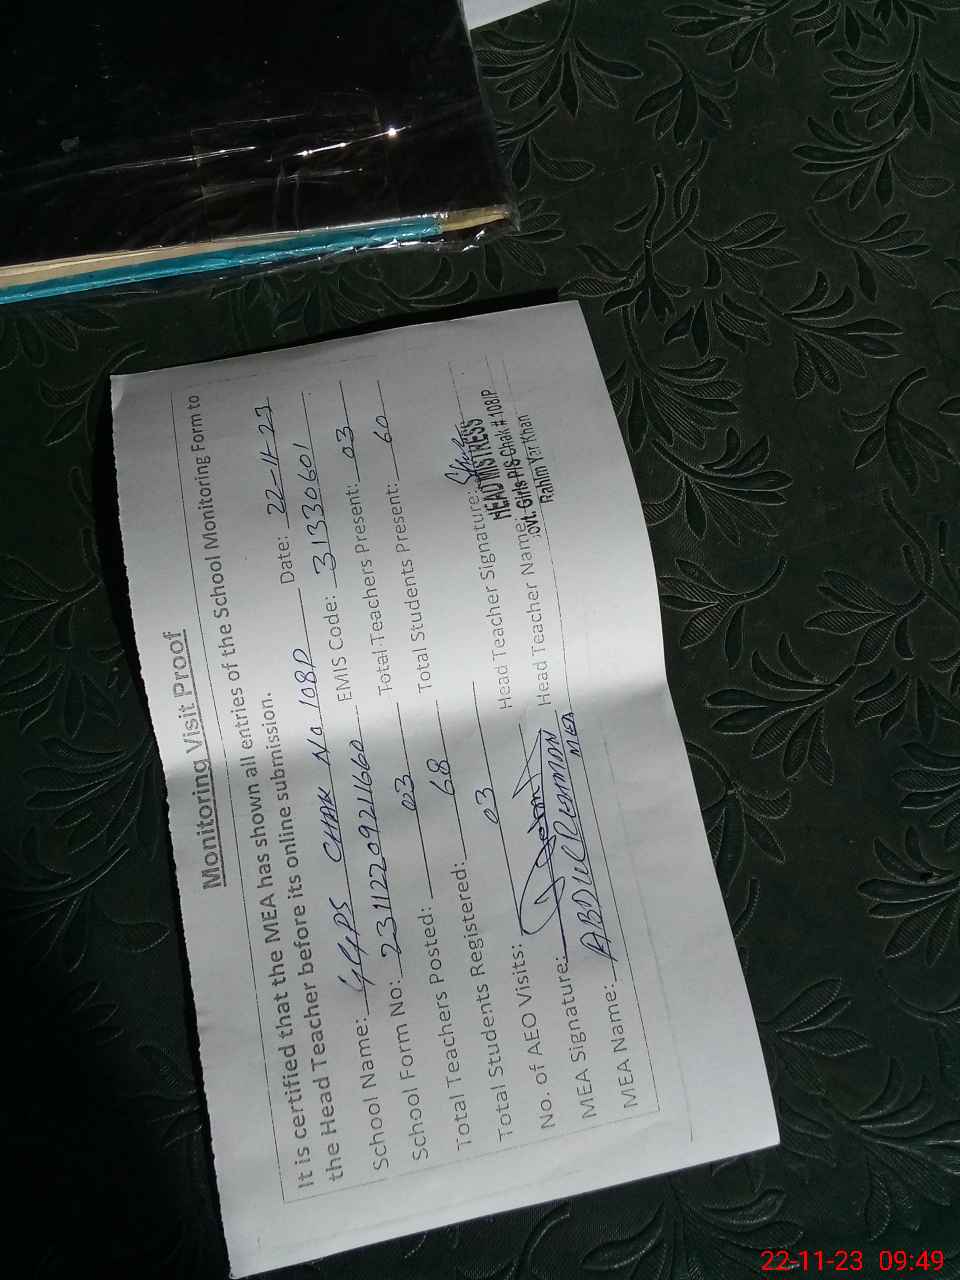 Monitoring Visit Proof
It is certified that the MEA has shown all entries of the School Monitoring Form to
the Head Teacher before its online submission.
School Name: GGPS CHAK No 108P Date: 22-11-23
School Form No: 231122092111660 EMIS Code: 31330601
Total Teachers Posted: 03 Total Teachers Present: 03
Total Students Registered: 68 Total Students Present: 60
No. of AEO Visits: 03
MEA Signature: Head Teacher Signature:
MEA Name: ABDUL REHMAN MEA Head Teacher Name:
HEAD MISTRESS
Govt. Girls P/S Chak # 108/P
Rahim Yar Khan
22-11-23 09:49